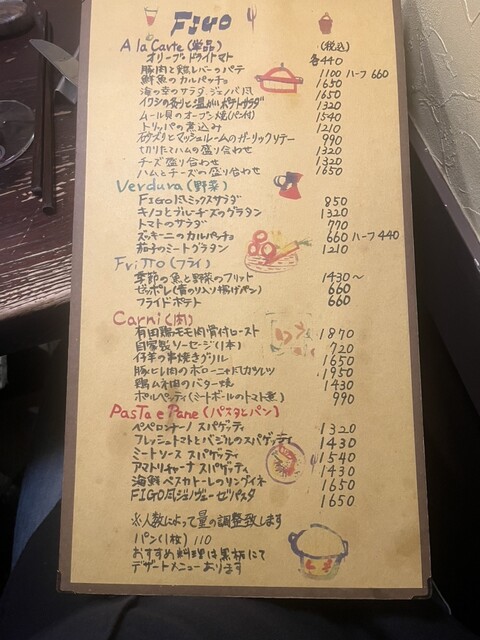 FIGO
A la Carte (単品) (税込)
オリーブ ドライトマト 各440
豚肉と鶏レバーのパテ 1100 ハーフ 660
鮮魚のカルパッチョ 1650
海の幸のサラダ、ジェノバ風 1650
イワシの炙りと温かいポテトサラダ 1320
ムール貝のオーブン焼(パン付) 1540
トリッパの煮込み 1210
砂ズリとマッシュルームのガーリックソテー 990
切りたてハムの盛り合わせ 1320
チーズ盛り合わせ 1320
ハムとチーズの盛り合わせ 1650
Verdura (野菜)
FIGO風ミックスサラダ 850
キノコとブルーチーズのグラタン 1320
トマトのサラダ 770
ズッキーニのカルパッチョ 660 ハーフ 440
茄子のミートグラタン 1210
FriTTo (フライ)
季節の魚と野菜のフリット 1430〜
ゼッポレ(青のり入り揚げパン) 660
フライドポテト 660
Carni (肉)
有田鶏モモ肉骨付ロースト 1870
自家製ソーセージ(1本) 720
仔羊の串焼きグリル 1650
豚ヒレ肉のボローニャ風カツレツ 1950
鶏ムネ肉のバター焼 1430
ポルペッティ(ミートボールのトマト煮) 990
PasTa e Pane (パスタとパン)
ペペロンチーノ スパゲッティ 1320
フレッシュトマトとバジルのスパゲッティ 1430
ミートソース スパゲッティ 1540
アマトリチャーナ スパゲッティ 1430
海鮮ペスカトーレのリングイネ 1650
FIGO風ジェノヴェーゼパスタ 1650
※人数によって量の調整致します
パン(1枚) 110
おすすめ料理は黒板にて
デザートメニューあります